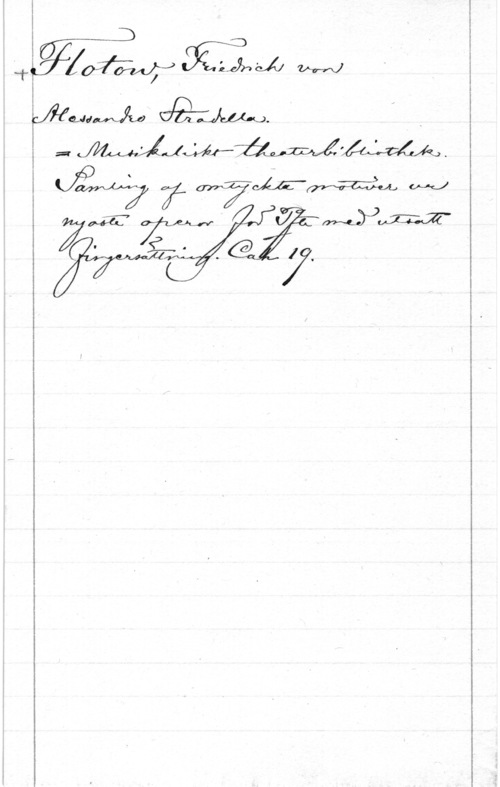 +Flotow, Friedrich von
Alessandro Stradella.
= Musikaliskt theaterbibliothek.
Samling af omtyckta motiver ur
nyaste operor för Pfte med utsatt
fingersättning. Cah 19.